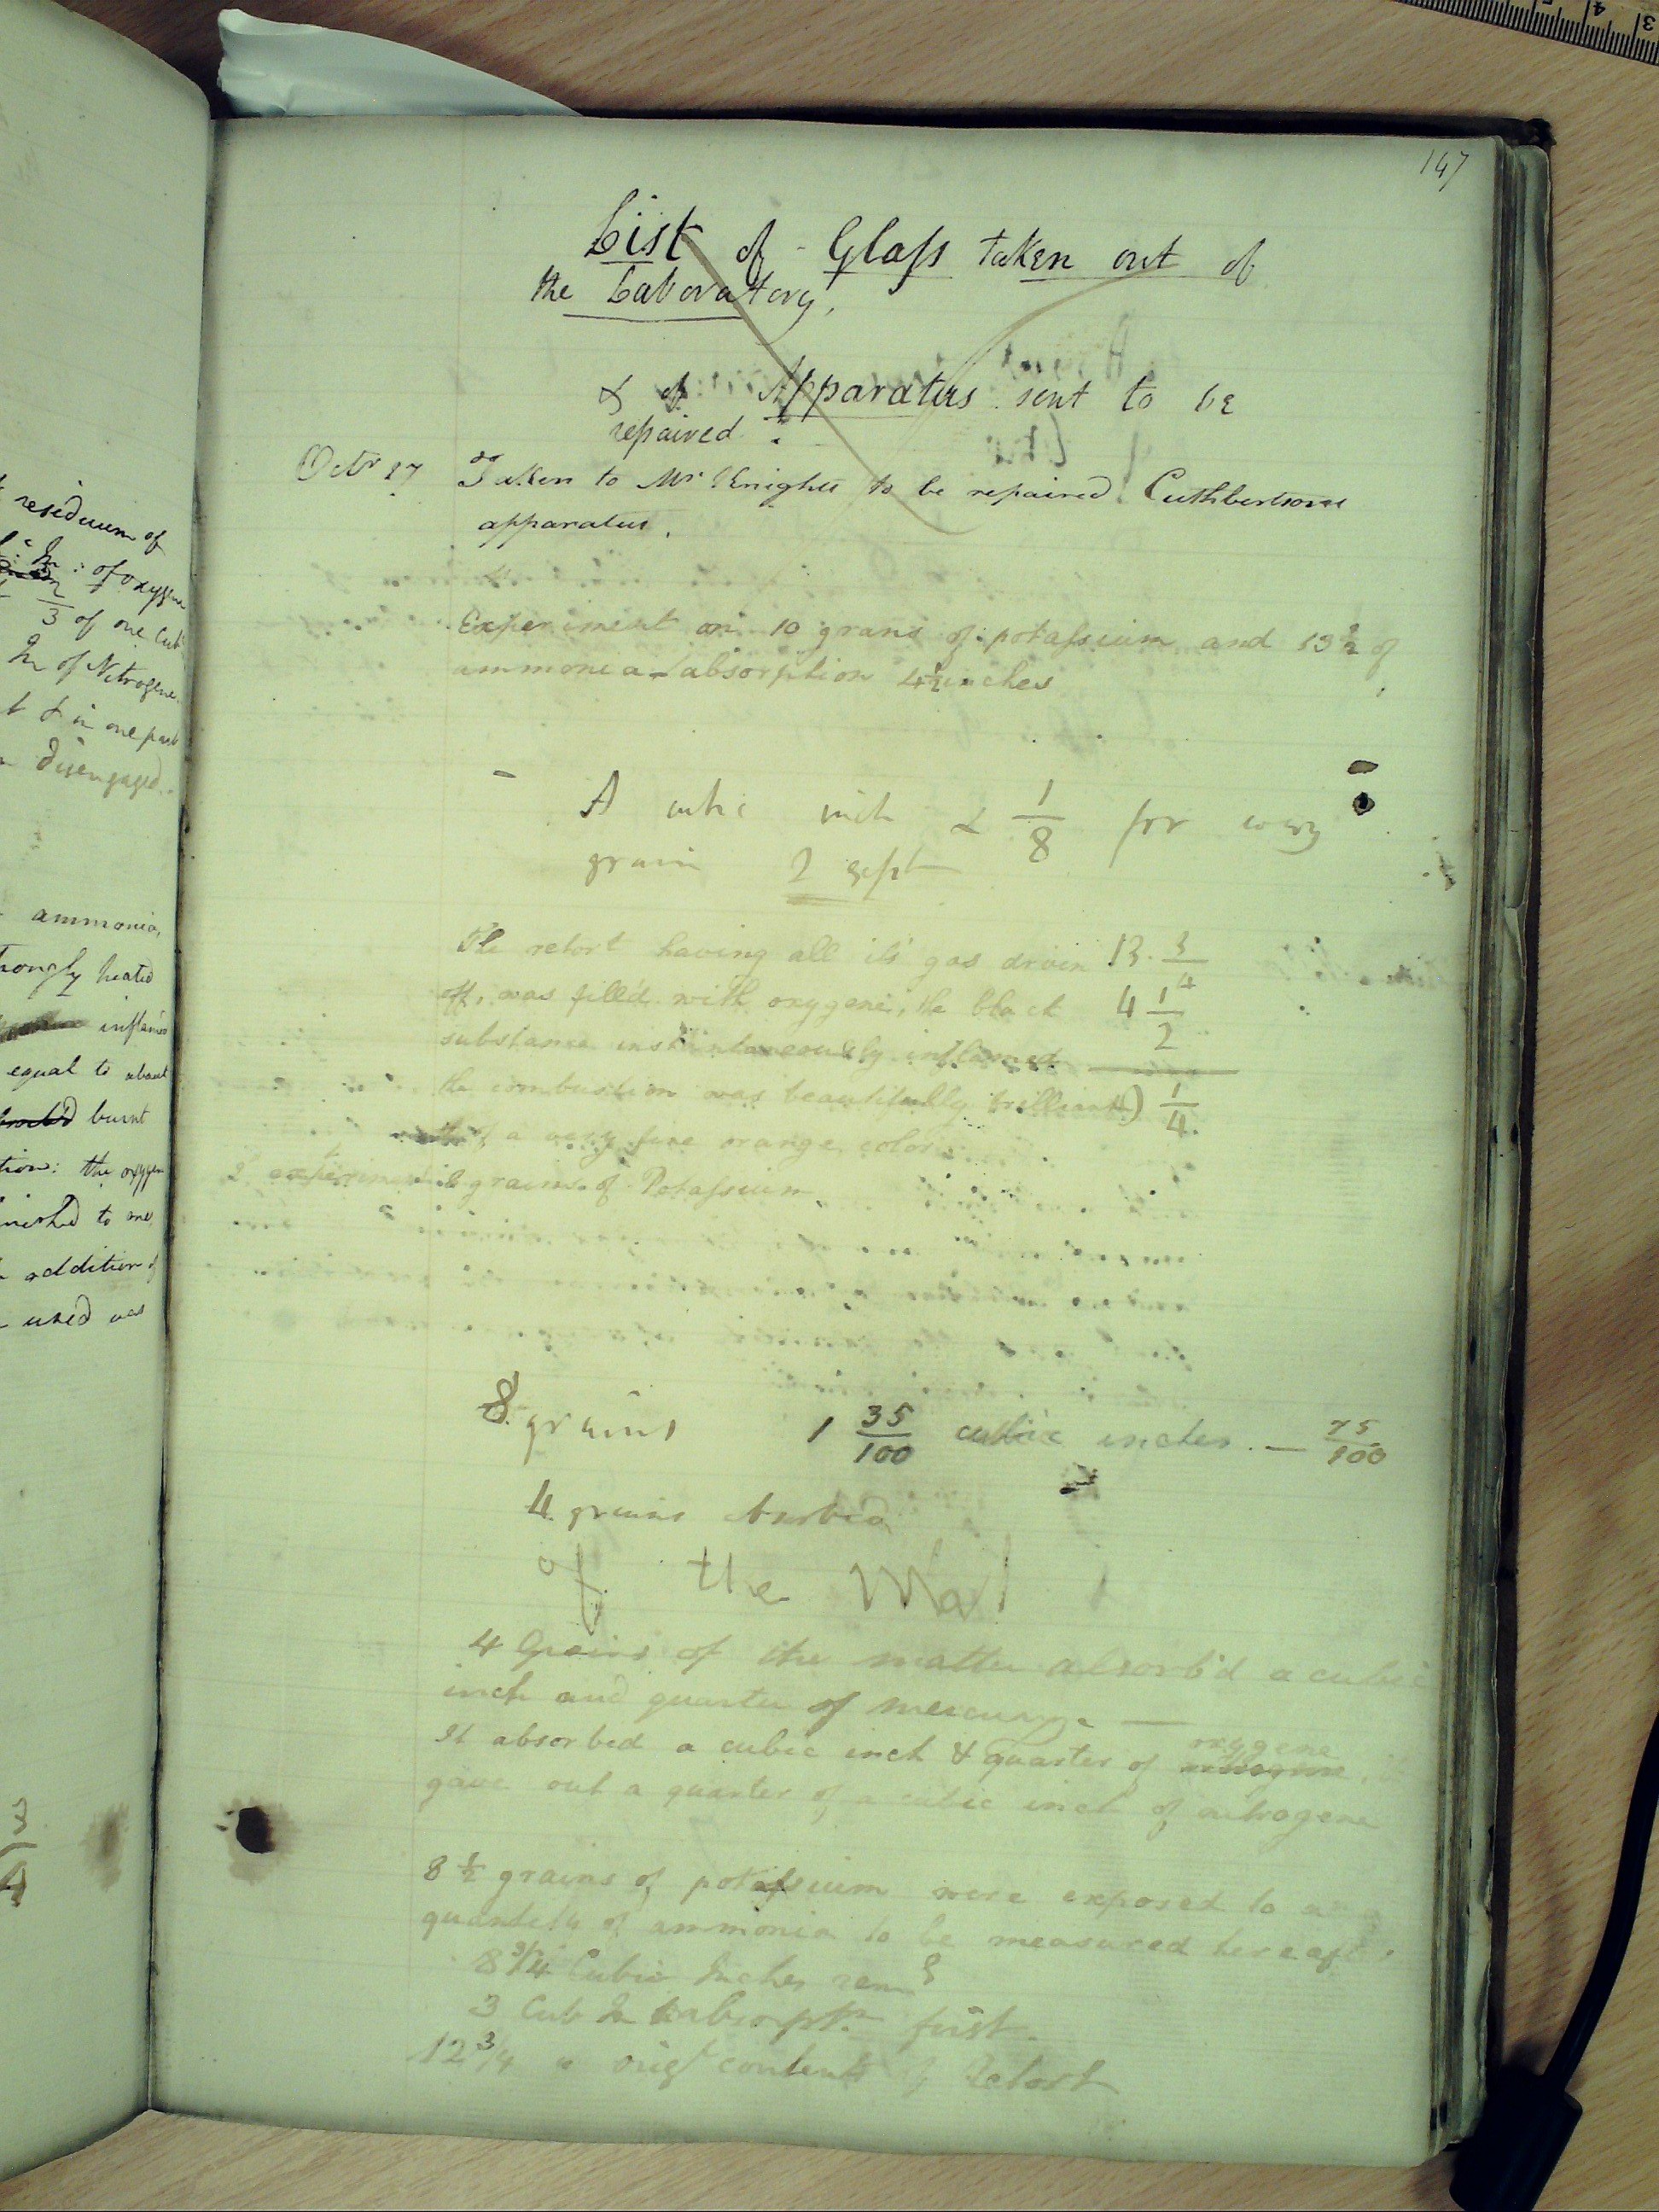 residuum of
of oxygene
2/3 of one Cub
In of Nitrogene
t & in one part
disengaged.
ammonia,
strongly heated
equal to about
burnt
the oxygen
addition of
used was
3/4
147
List of Glass taken out of
the Laboratory,
& of Apparatus sent to be
repaired.
Octr 27 Taken to Mr Knights to be repaired Cuthbertsons
apparatus.
Experiment on 10 grans of potassium and 13 1/2 of
ammonea - absorption 4 1/2 inches
A cubic inch & 1/8 for every
grain 2 sept
The retort having all its gas driven 13. 3/4
off, was fill'd with oxygene, the black 4 1/2
substance instantaneously inflamed
the combustion was beautifully brilliant 1/4
of a very fine orange color
2 experiment 8 grains of Potassium
8 grains 1 35/100 cubic inches. — 75/100
4 grains
of the Mat
4 Grains of the matter absorb'd a cubic
inch and quarter of mercury. —
It absorbed a cubic inch & quarter of oxygene
gave out a quarter of a cubic inch of nitrogene
8 1/2 grains of potassium were exposed to a
quantity of ammonia to be measured hereaft
8 3/4 Cubic Inches remg
3 Cub In absorptn first.
12 3/4 " origl contents of Retort